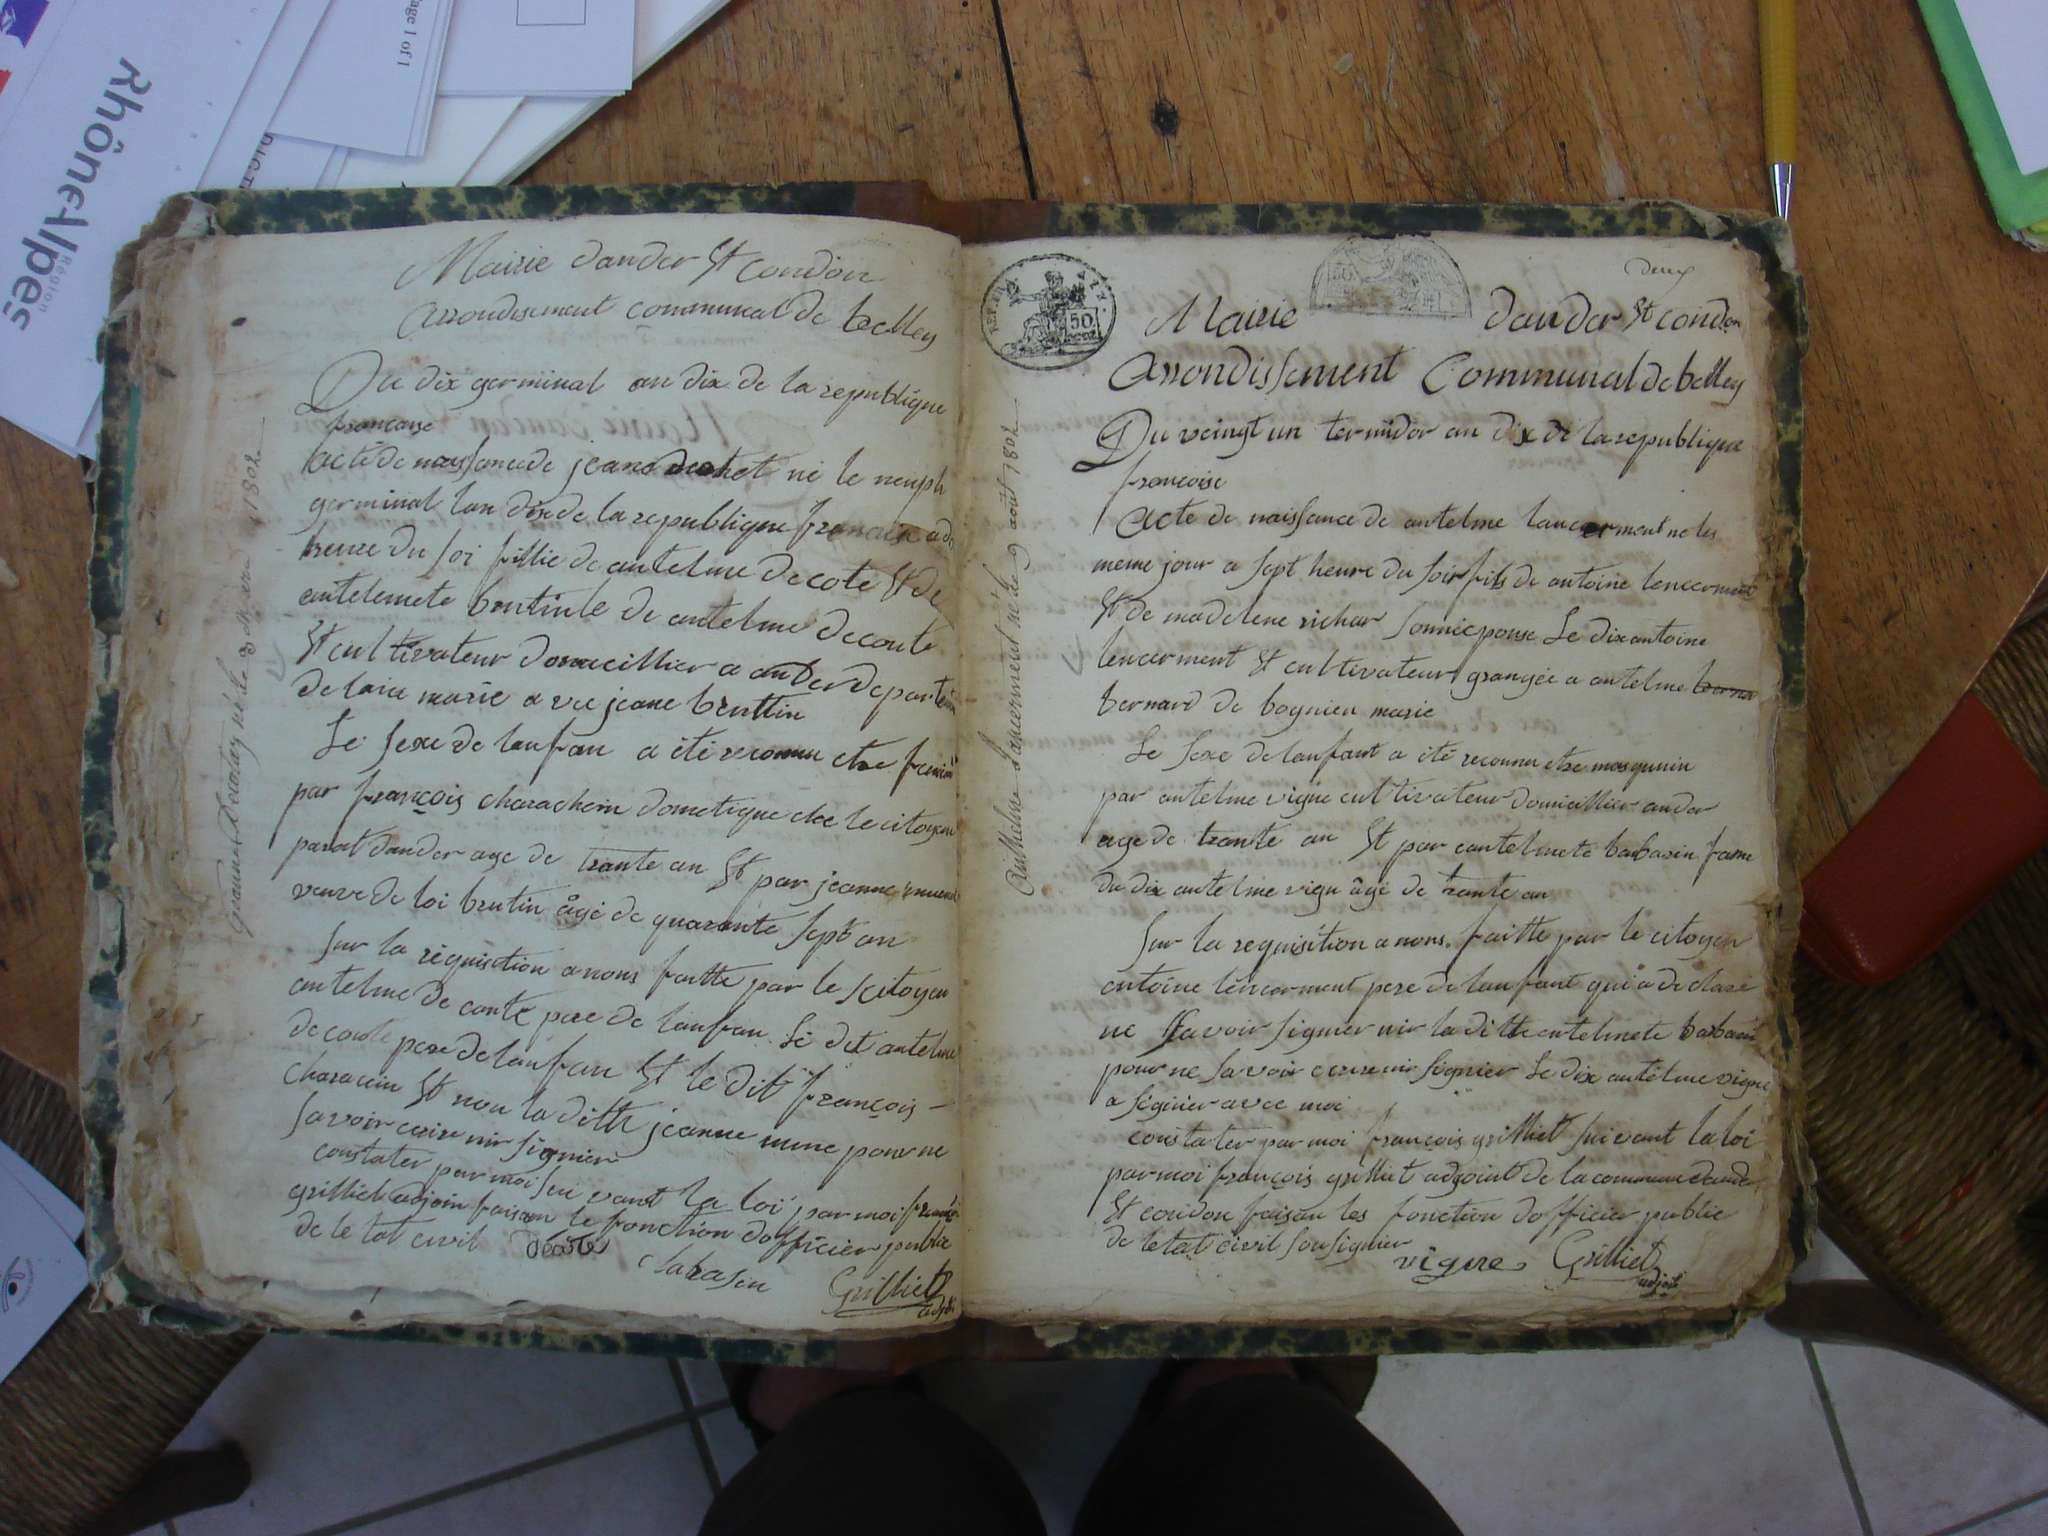 Rhône-Alpes
Région
Page 1 of 1
Mairie dander St condon
arrondisement communal de belley
Du dix germinal an dix de la republique
francoise
acte de naissance de jeane ne le
germinal lan dix de la republique francoise a
heure du soi fillie de antelme decote St de
antelemete brutin le de antelme decoute
St cultivateur domicillier a ander
de laiu marie a vec jeane bruttin
Le sexe de lanfan a été reconnu etre
par françois charachein dometique chee le citoyen
parat dander age de trante an St par jeanne
veuve de loi brutin âgé de quarante sept an
sur la réquisition a nous faitte par le scitoyen
antelme de coute pere de lanfan Le dit antelme
de coute pere de lanfan St le dit françois
characein St non la ditte jeanne pour ne
savoir ecrire nir signier
constater par moi sui vant la loi par moi
grilliet adjoin faison le fonction dofficier public
de le tat civil
Grilliet
1802
deux
50
Mairie dander St condon
Arrondissement Communal de belley
Du veingt un termidor an dix de la republique
francoise
Acte de naissance de antelme lancerment ne les
meme jour a sept heure du soir fils de antoine lencerment
St de madelene richar sonnéepouse Le dix antoine
lencerment St cultivateur grangée a antelme
bernard de bognieu marie
Le sexe de lanfant a été reconnu etre masqunin
par antelme vigne cultivateur domicillier ander
age de trante an St par antelmete babasin fame
du dix antelme vign âgé de trante an
Sur la requisition a nous faitte par le citoyen
antoine lencerment pere de lanfant qui a declaré
ne savoir signier nir la ditte antelmete babasin
pour ne savoir ecrire nir signier Le dix antelme vigne
a signier avec moi
constater par moi françois grilliet suivant la loi
par moi françois grilliet adjoint de la commune dander
St condon faisan les fonction dofficier public
de letat civil sousignier
vigne Grilliet
adjoit
Anthelme Lancerment né le 9 août 1802